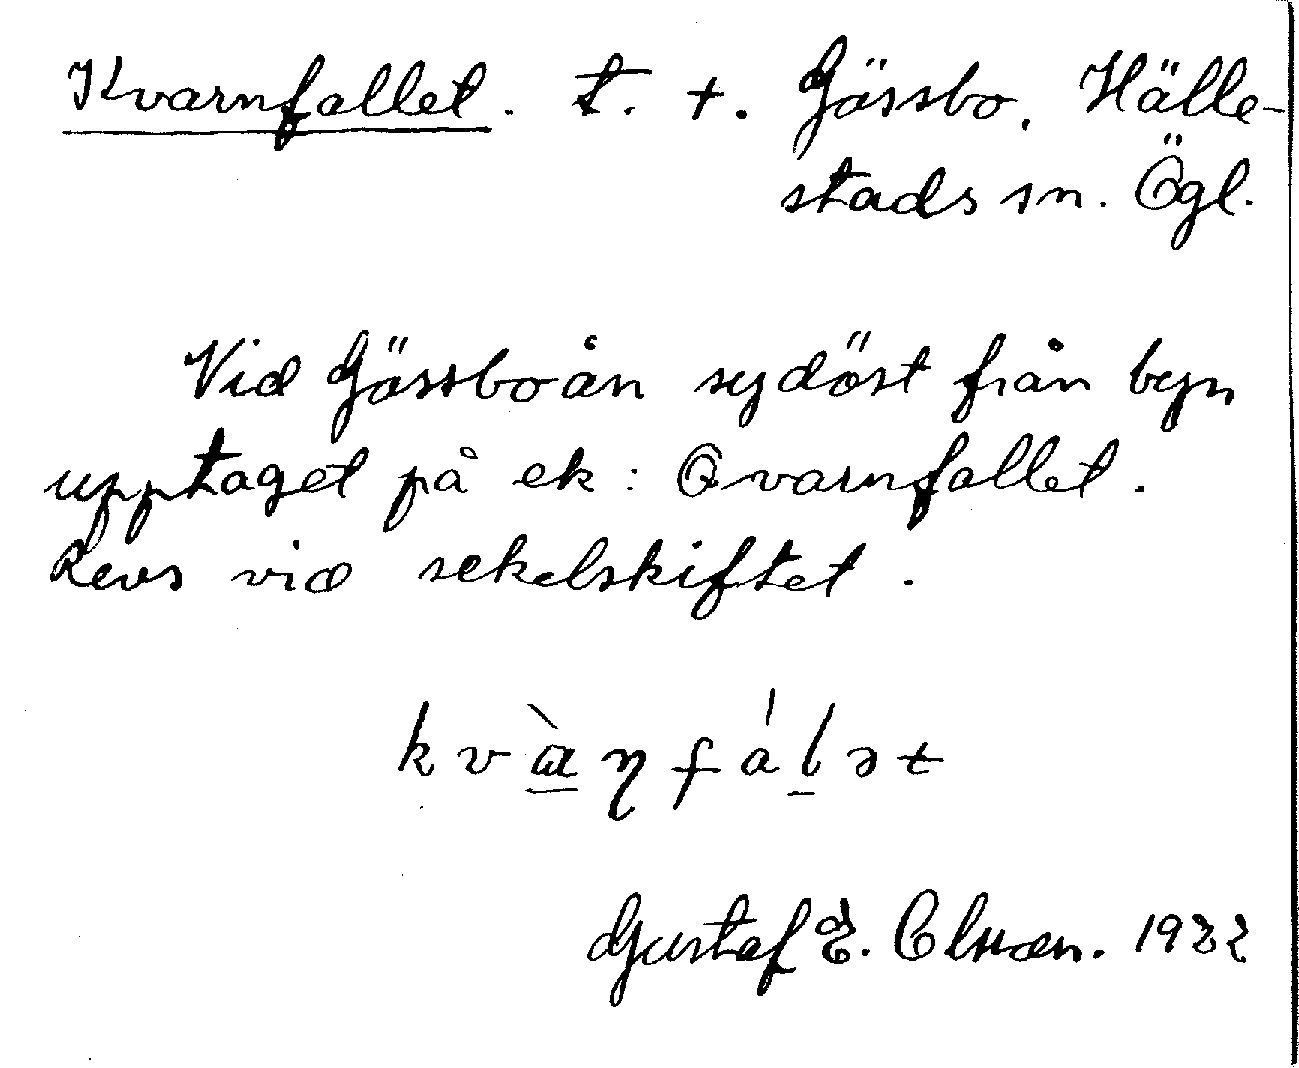 Kvarnfallet. t. +. Gässbo, Hälle-
stads sn. Ögl.
Vid Gässboån sydöst från byn
upptaget på ek: Qvarnfallet.
Revs vid sekelskiftet.
kvàɳfáḻət
Gustaf E. Olsson. 1932